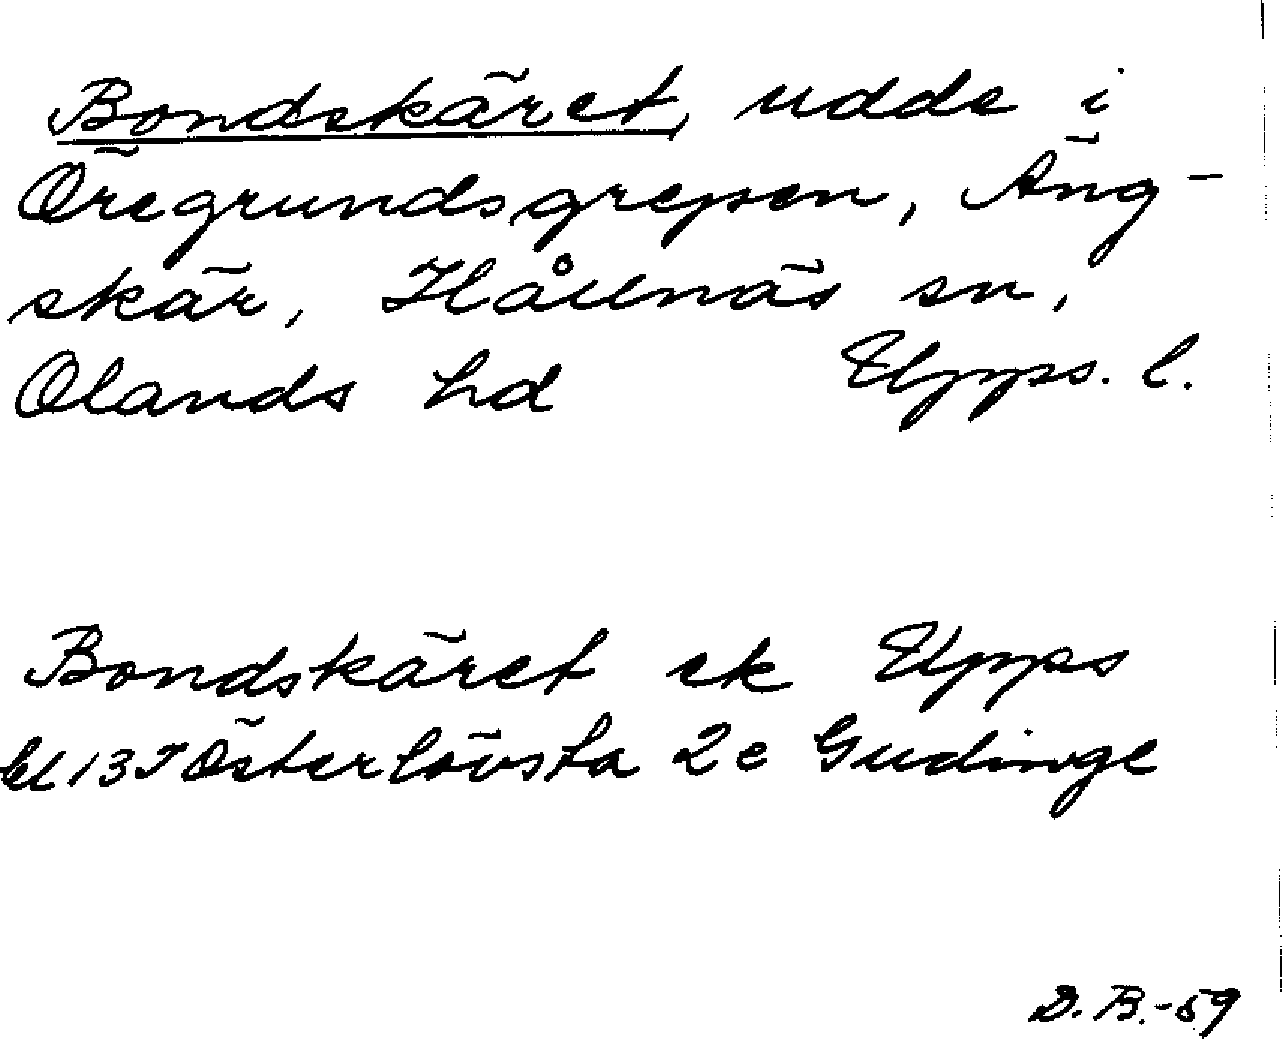 Bondskäret, udde i
Öregrundsgrepen, Äng-
skär, Hållnäs sn,
Olands hd Upps. l.
Bondskäret ek Upps
bl 13 J Österlövsta 2e Gudinge
D. B. -59